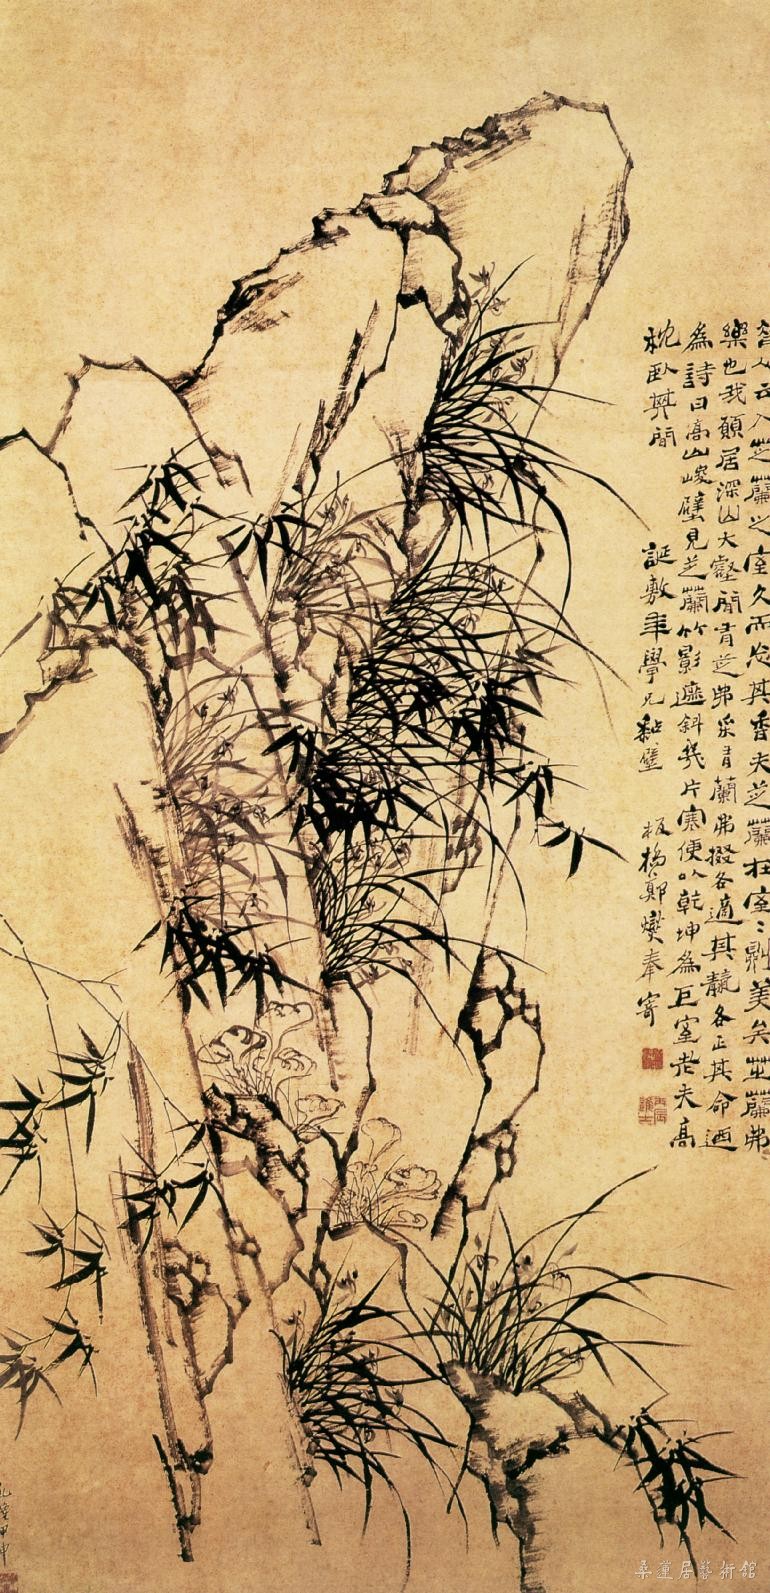 昔人云入芝蘭之室久而忘其香夫芝蘭在室室則美矣芝蘭弗
樂也我願居深山大壑間有芝弗采有蘭弗掇各適其 各正其命迺
為詩曰高山峻壁見芝蘭竹影遮斜幾片寒便以乾坤為巨室老夫高
枕臥其間
誕敷年學兄粘壁 板橋鄭燮奉寄
丙辰進士
乾隆甲申
桑蓮居藝術館